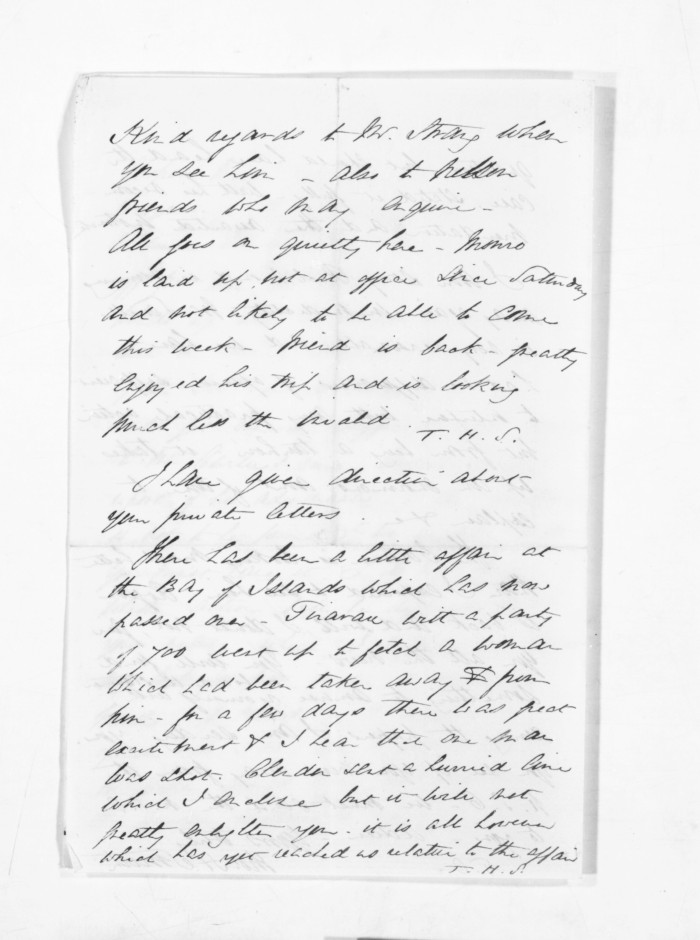 Kind regards to Mr. Strang when
you see him - also to Nelson
friends who may enquire -
All goes on quietly here - Monro
is laid up, not at office since Saturday
and not likely to be able to come
this week - Friend is back - greatly
enjoyed his trip and is looking
much less the invalid.
T. H. S.
I have given direction about
your private letters.
There has been a little affair at
the Bay of Islands which has now
passed over - Tirarau with a party
of 700 went up to fetch a woman
which had been taken away from
him - for a few days there was great
excitement & I hear that one man
was shot. Clendon sent a hurried line
which I enclose but it will not
greatly enlighten you. it is all however
which has yet reached us relative to the affair
T. H. S.